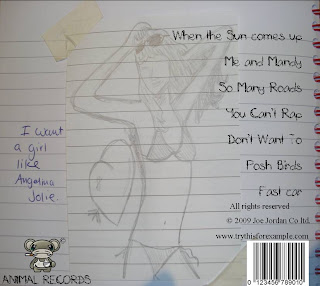 When the Sun comes up
Me and Mandy
So Many Roads
You Can't Rap
Don't Want To
Posh Birds
Fast car
I want
a girl
like
Angelina
Jolie.
All rights reserved
© 2009 Joe Jordan Co ltd.
www.trythisforexample.com
ANIMAL RECORDS
0 123456 789010